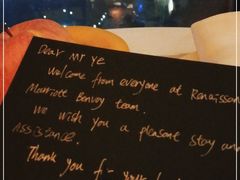 Dear Mr Ye
Welcome from everyone at Renaissan
Marriott Bonvoy team.
We wish you a pleasant stay an
Assistance.
Thank you f